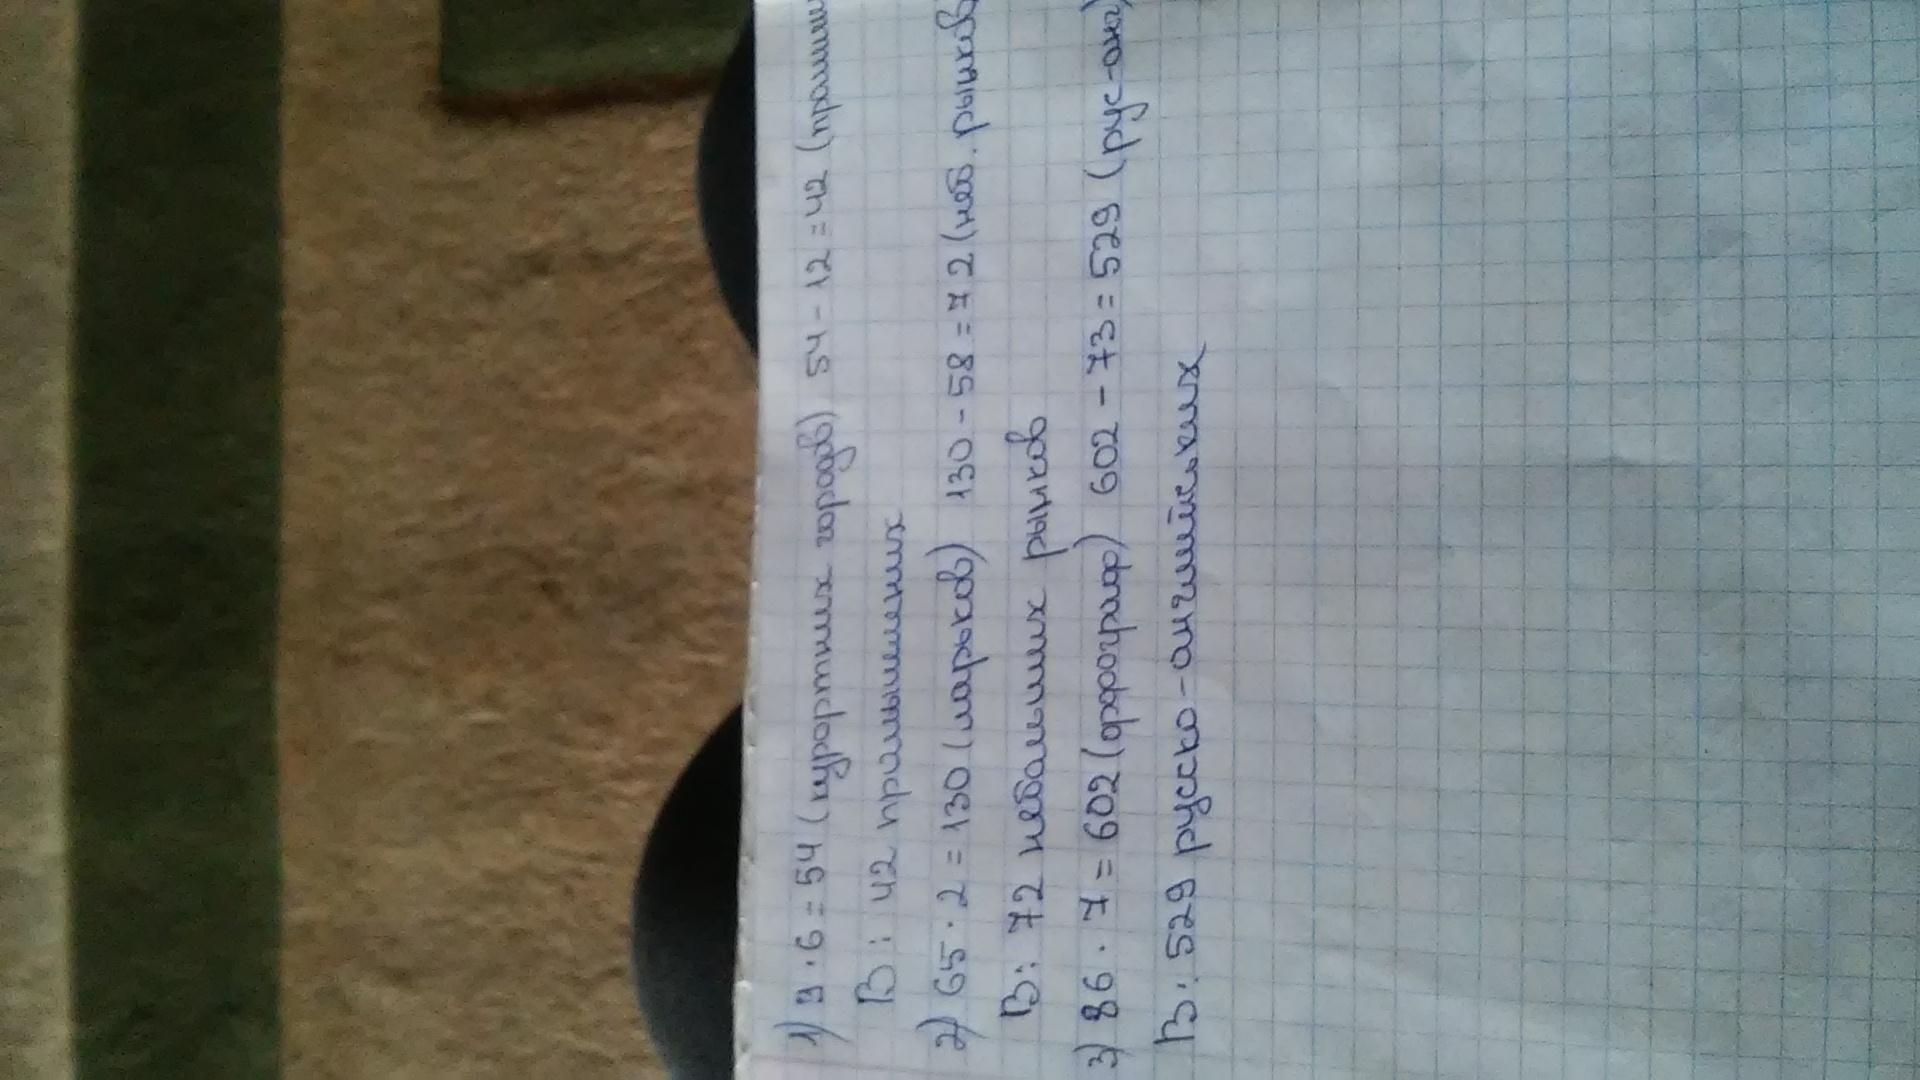 1) 9 · 6 = 54 (курортних городв) 54 - 12 = 42 (прамиш
В: 42 прамышлених
2) 65 · 2 = 130 (ларьков) 130 - 58 = 72 (неб. рынков
В: 72 небальших рынков
3) 86 · 7 = 602 (орфограф) 602 - 73 = 529 (рус-анг)
В: 529 русско-английських